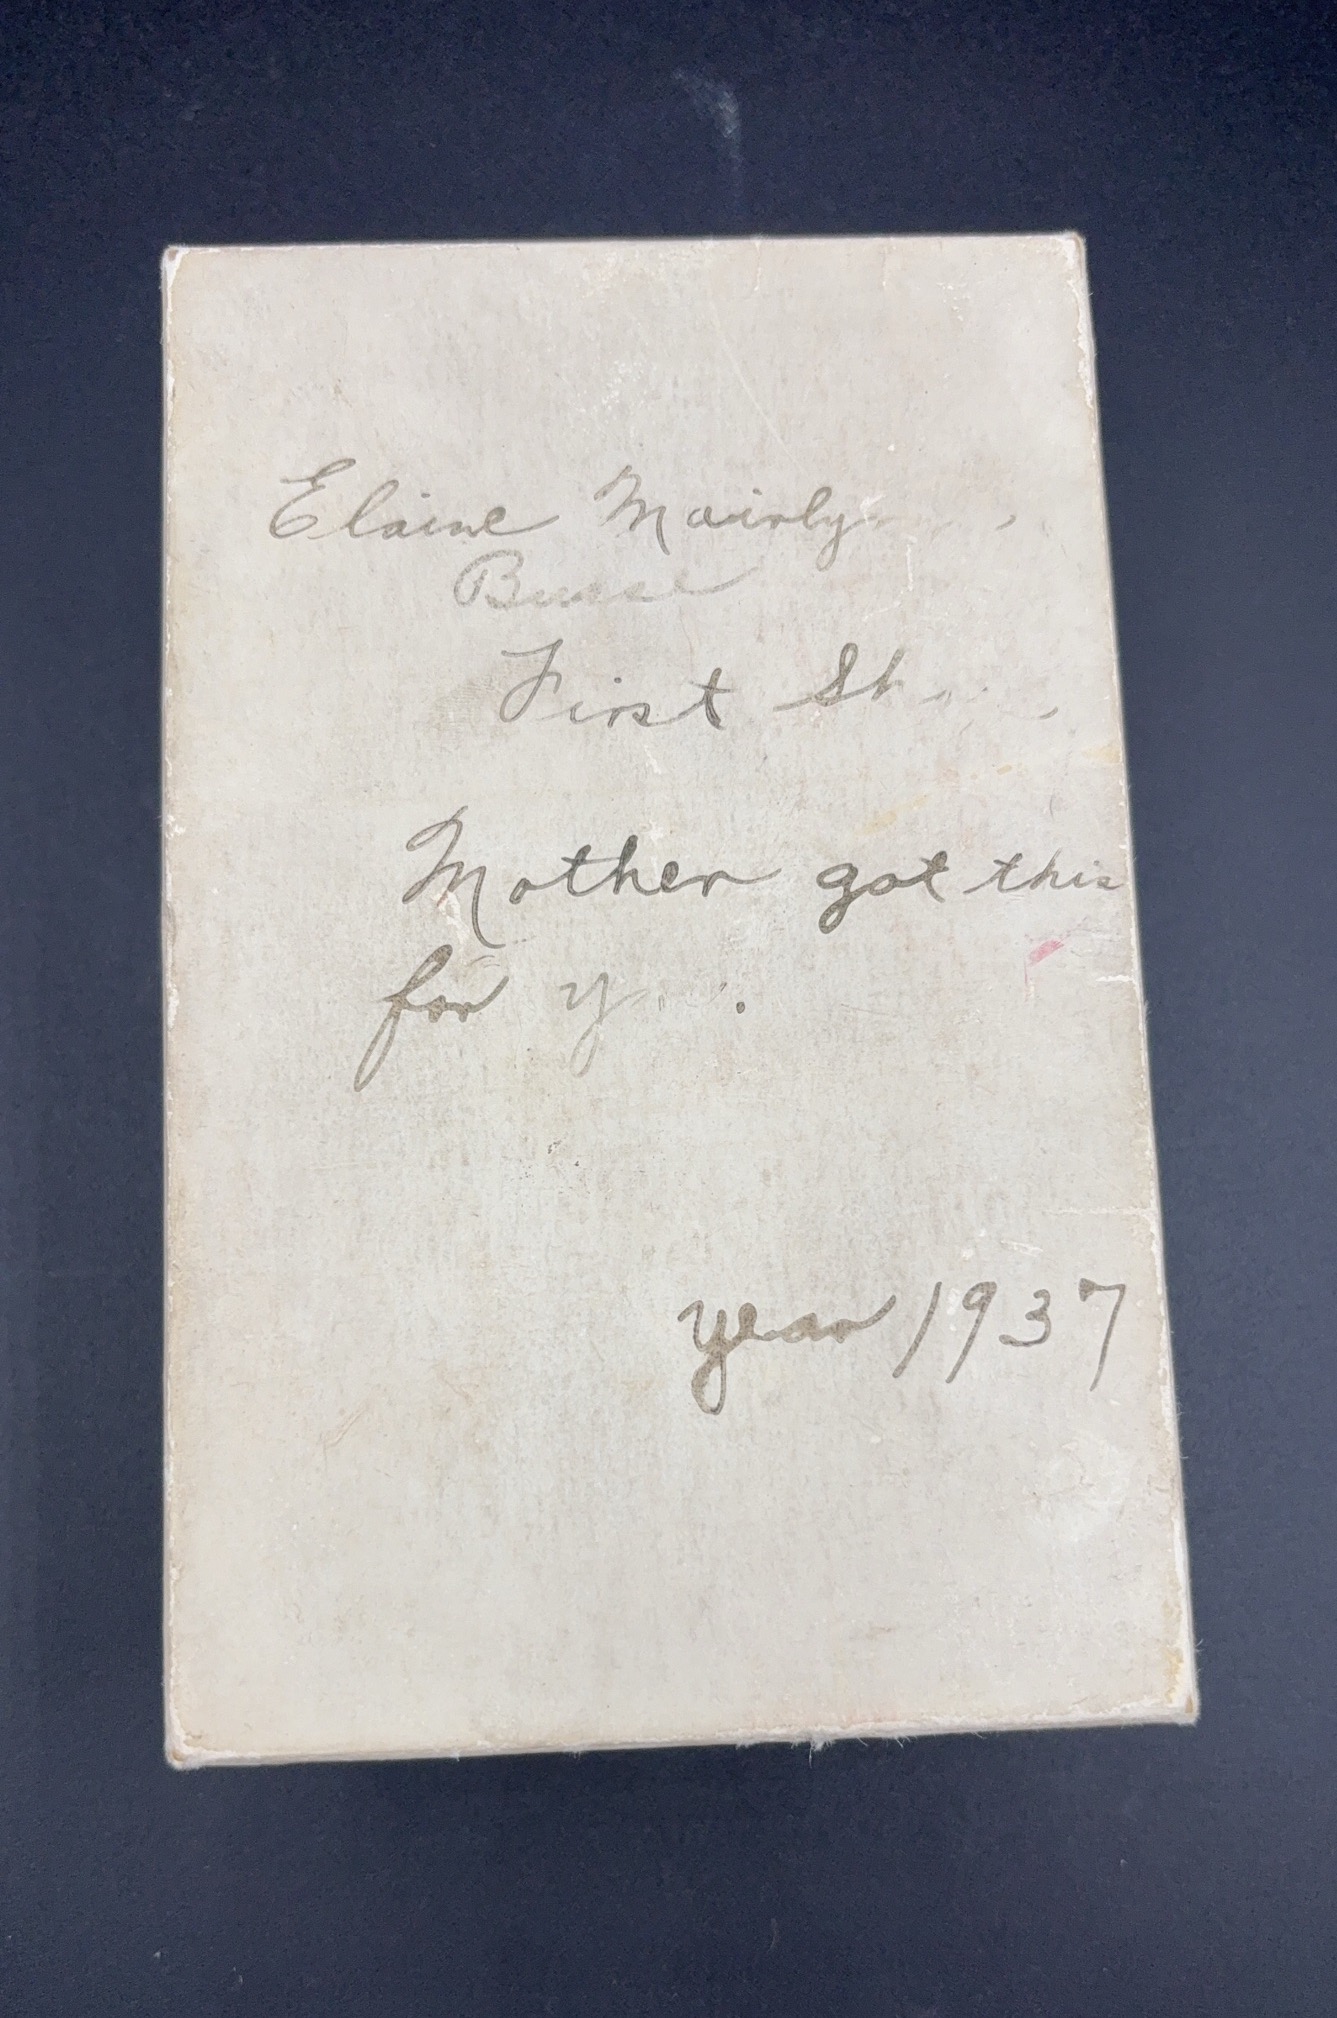 Elaine Mairly
First St
Mother got this
for
year 1937